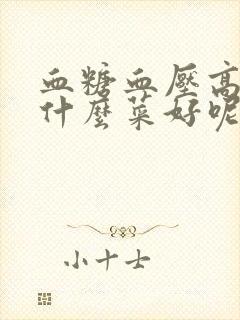 血糖血壓高
什麼菜好呢
小十士